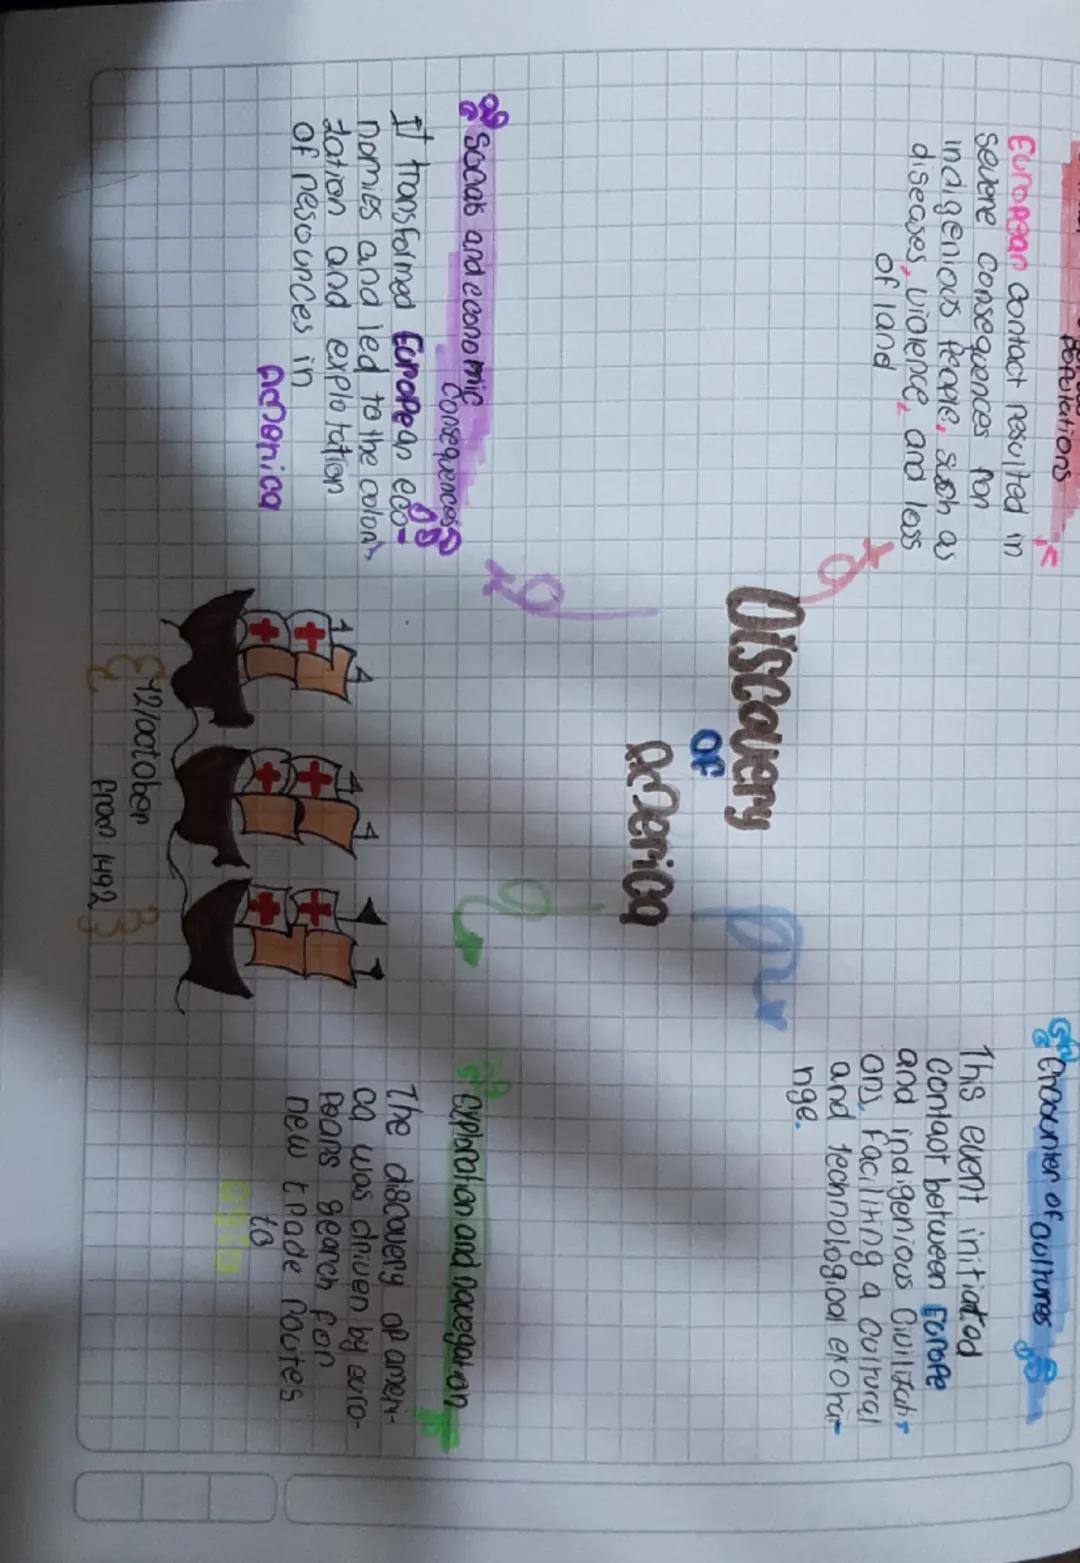 populations
European contact resulted in
severe consequences for
indigenious people, such as
diseases, violence, and loss
of land
Encounter of cultures
This event initiated
contact between Europe
and indigenious Civilizati-
ons, faciliting a cultural
and technological excha-
nge.
Discovery
OF
America
Socials and economic
consequences
It transformed European eco-
nomies and led to the coloni
zation and explotation
of resources in
America
exploration and navegation
The discovery of ameri-
ca was driven by euro-
peans search for
new trade routes
to
asia
12/october
from 1492